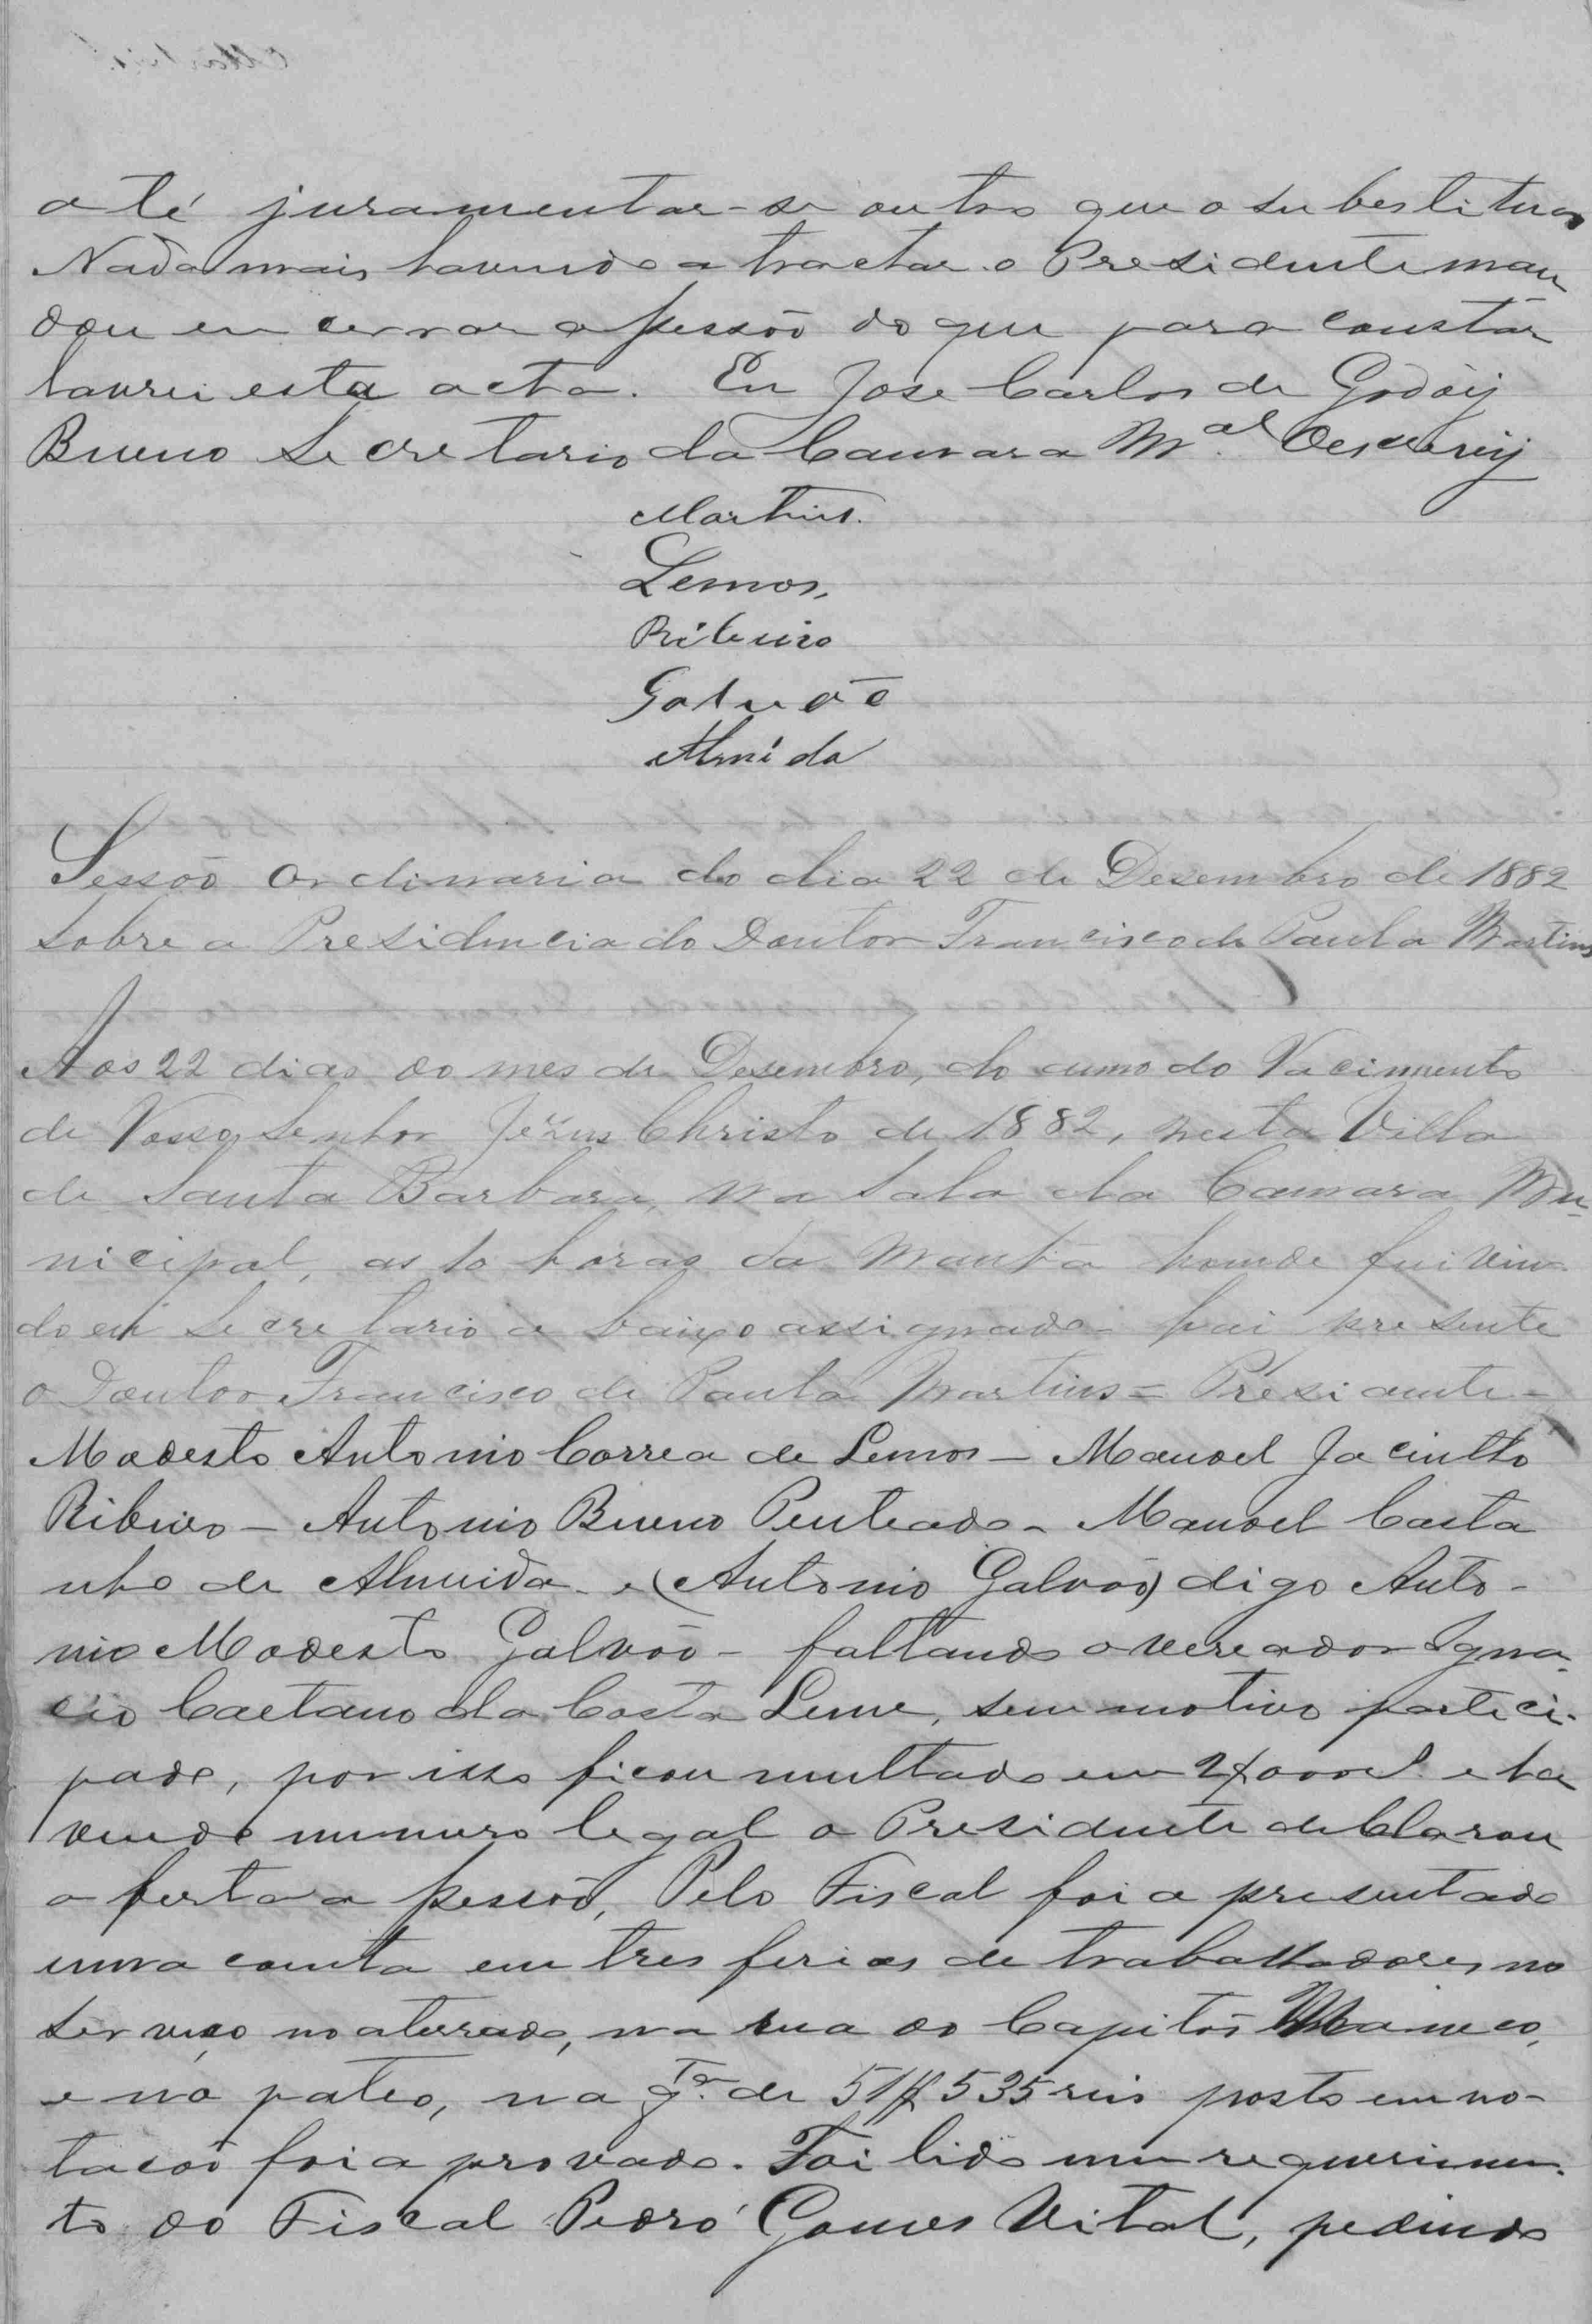 até juramentar-se outro que o subestitua
Nada mais havendo a tractar o Presidente man
dou encerrar a sessão do que para constár
lavrei esta acta. Eu Jose Carlos de Godóij
Bueno Secretario da Camara M.al escrevij
Martins.
Lemos,
Ribeiro
Galvão
Almida
Sessão Ordinaria do dia 22 de Desembro de 1882
sobre a Presidencia do Doutor Francisco de Paula Martins
Aos 22 dias do mes de Desembro, do anno do Nacimento
de Nosso Senhor Jezus Christo de 1882, nesta Villa
de Santa Barbara, na sala da Camara Mu-
nicipal, as 10 horas da manhã honde fui vin-
do eu Secretario a baixo assignado - hai presente
o Doutor Francisco de Paula Martins = Presidente -
Modesto Antonio Correa de Lemos - Manoel Jacintho
Ribeiro - Antonio Bueno Penteado - Manoel Casta
nho de Almeida - e (Antonio Galvão) digo Anto-
nio Modesto Galvão - faltando o vereador Igna-
cio Caetano da Costa Leme, sem motivo partici-
pado, por isso ficou multado em 2$000 e ha
vendo numero legal o Presidente deClarou
a berta a sessão, Pelo Fiscal foi a presentado
uma counta em tres ferias de trabalhadores no
serviço no aterrado, na rua do Capitão Maneco,
e no pateo, na q.ta de 51$535 reis posto em vo-
tacão foi a provado. Foi lido um requerimen-
to do Fiscal Pedro Gomes Vital, pedindo